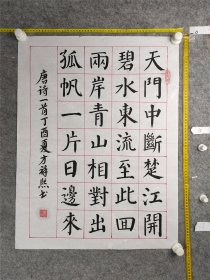 天門中斷楚江開
碧水東流至此回
兩岸青山相對出
孤帆一片日邊來
唐诗一首丁酉夏方梓熙书